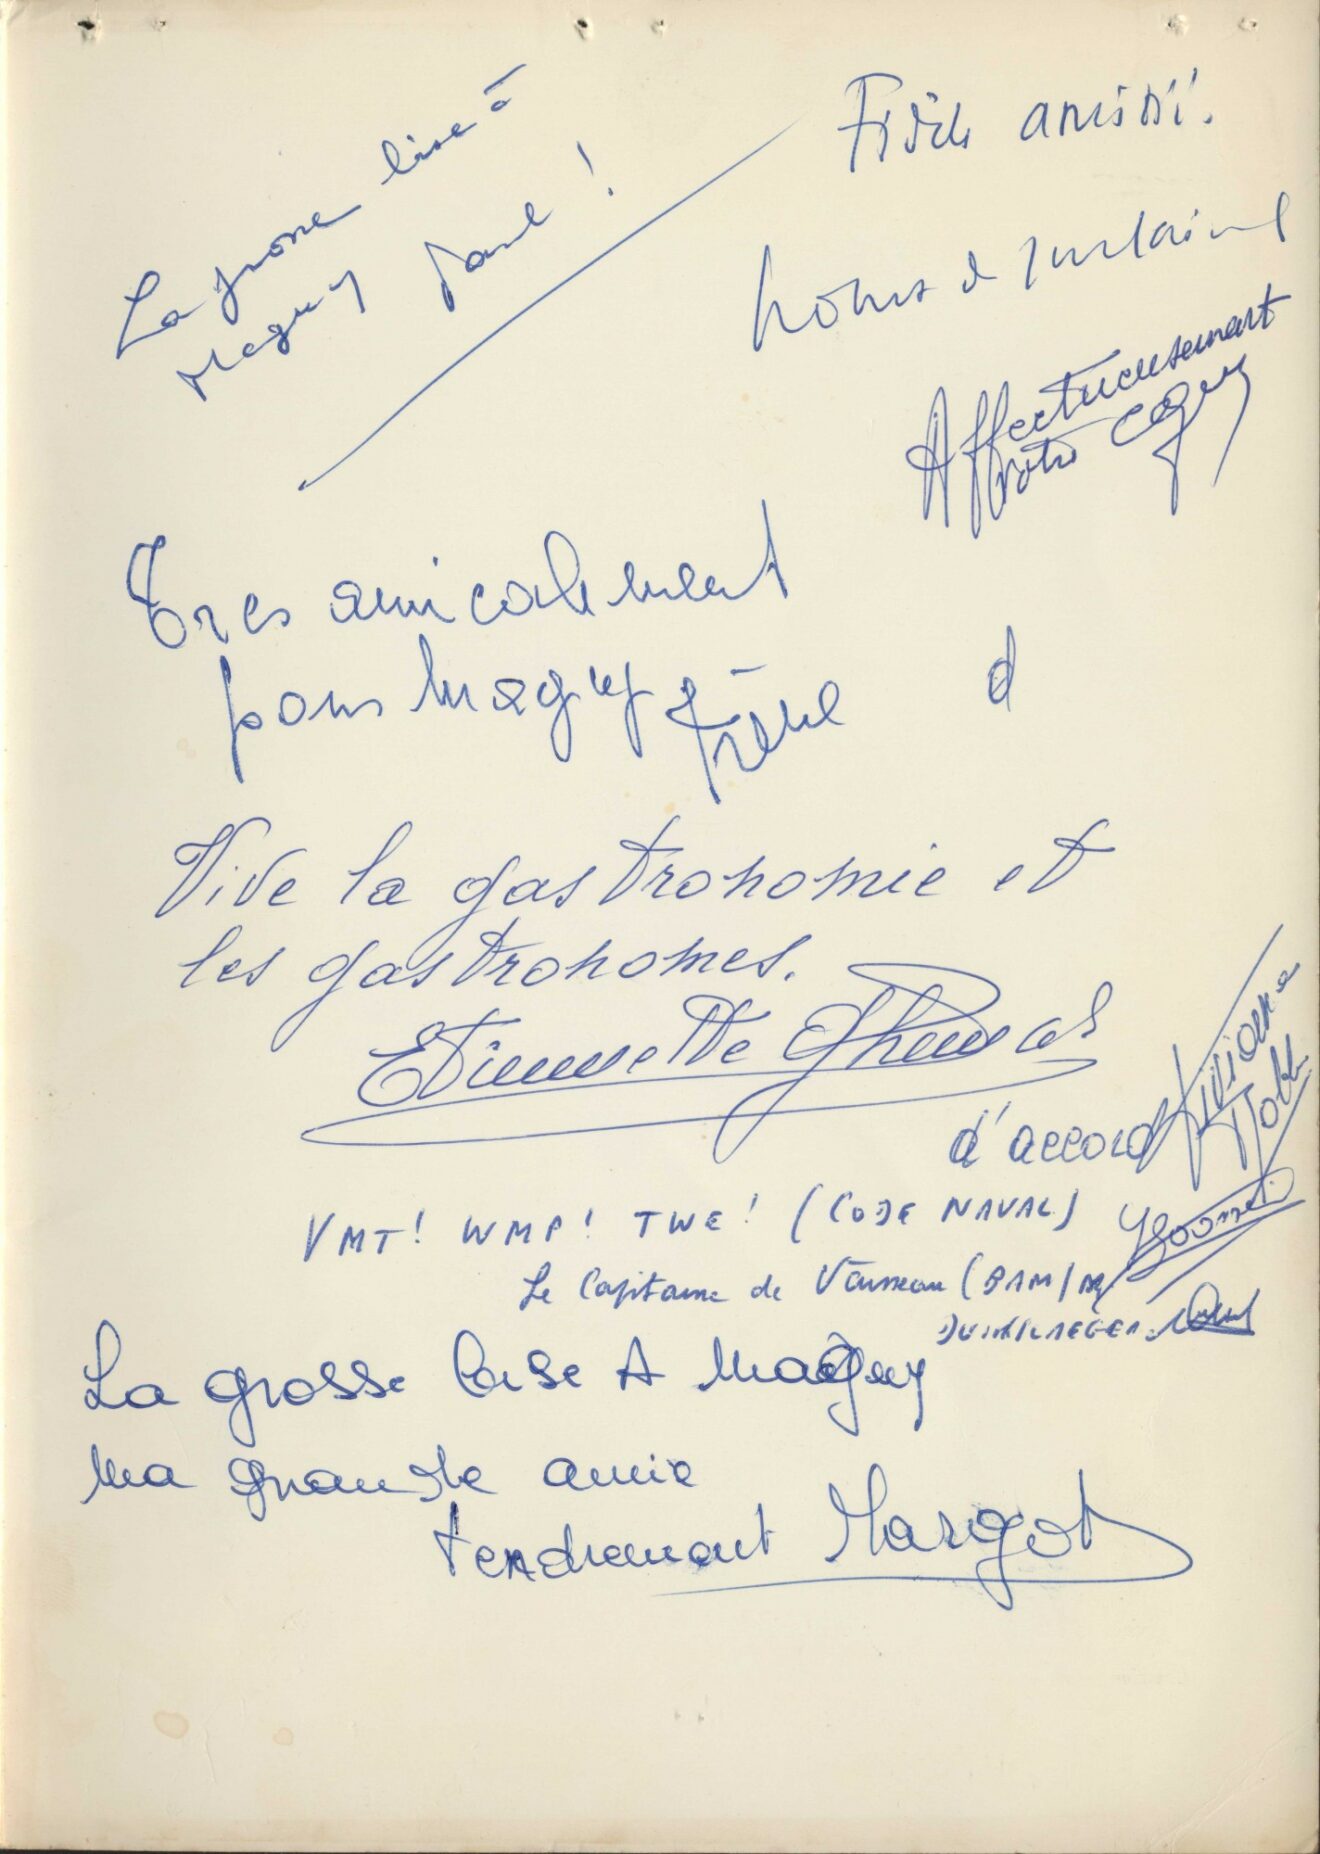 La grosse bise à
Maguy Paul !
Fidèle amitié.
Affectueusement
votre Coguy
Très amicalement
pour Maguy Irène
d
Vive la gastronomie et
les gastronomes.
Etiennette
d'accord Viviane
Noble
VMT! WMP! TWE! (CODE NAVAL)
Le Capitaine de Vaisseau (BAM)
La grosse bise A Maguy
Ma grande amie
tendrement Margot